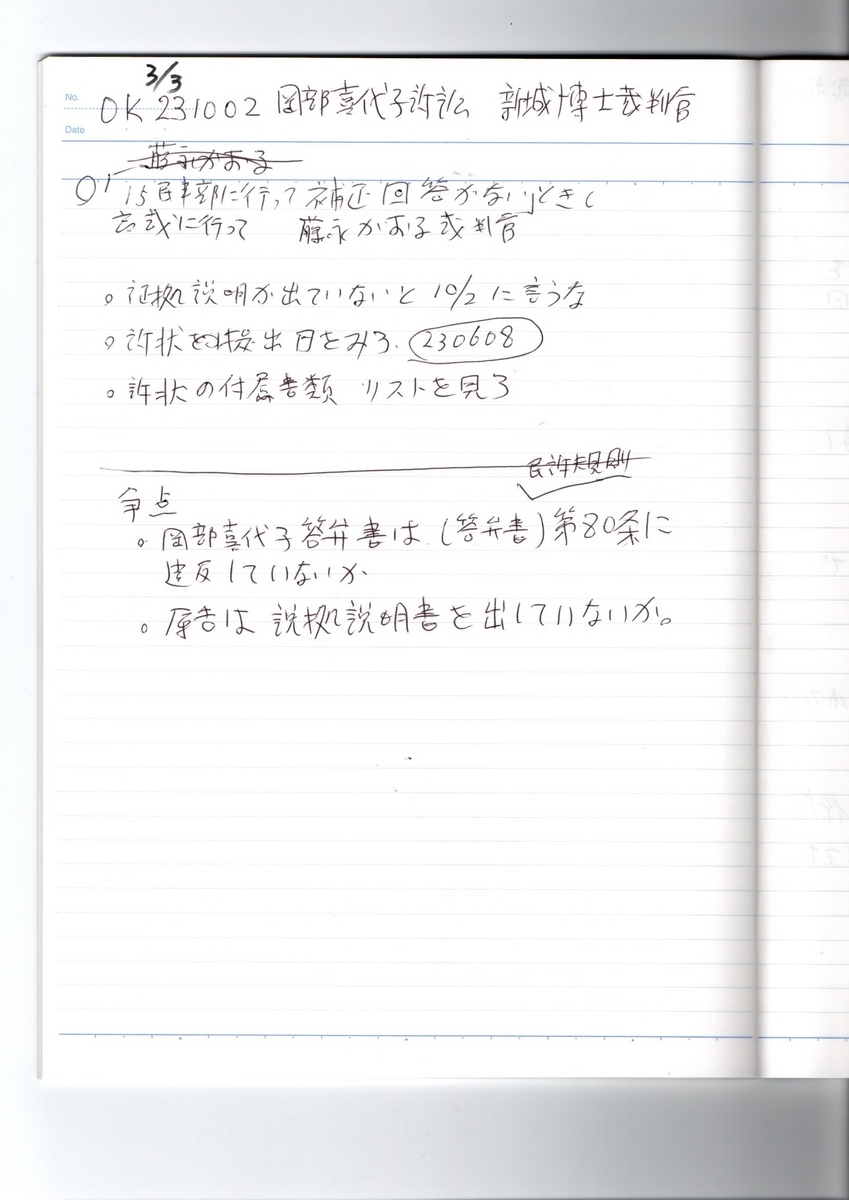 3/3
No.
OK 231002 岡部喜代子訴訟 新城博士裁判官
Date
藤永かおる
15民事部に行って補正回答がない」ときく
高裁に行って 藤永かおる裁判官
。証拠説明が出ていないと 10/2 に言うな
。訴状を提出日をみろ、230608
。訴状の付属書類 リストを見ろ
民訴規則
争点
。岡部喜代子答弁書は、(答弁書)第80条に
違反していないか、
。原告は 説拠説明書を出していないか。